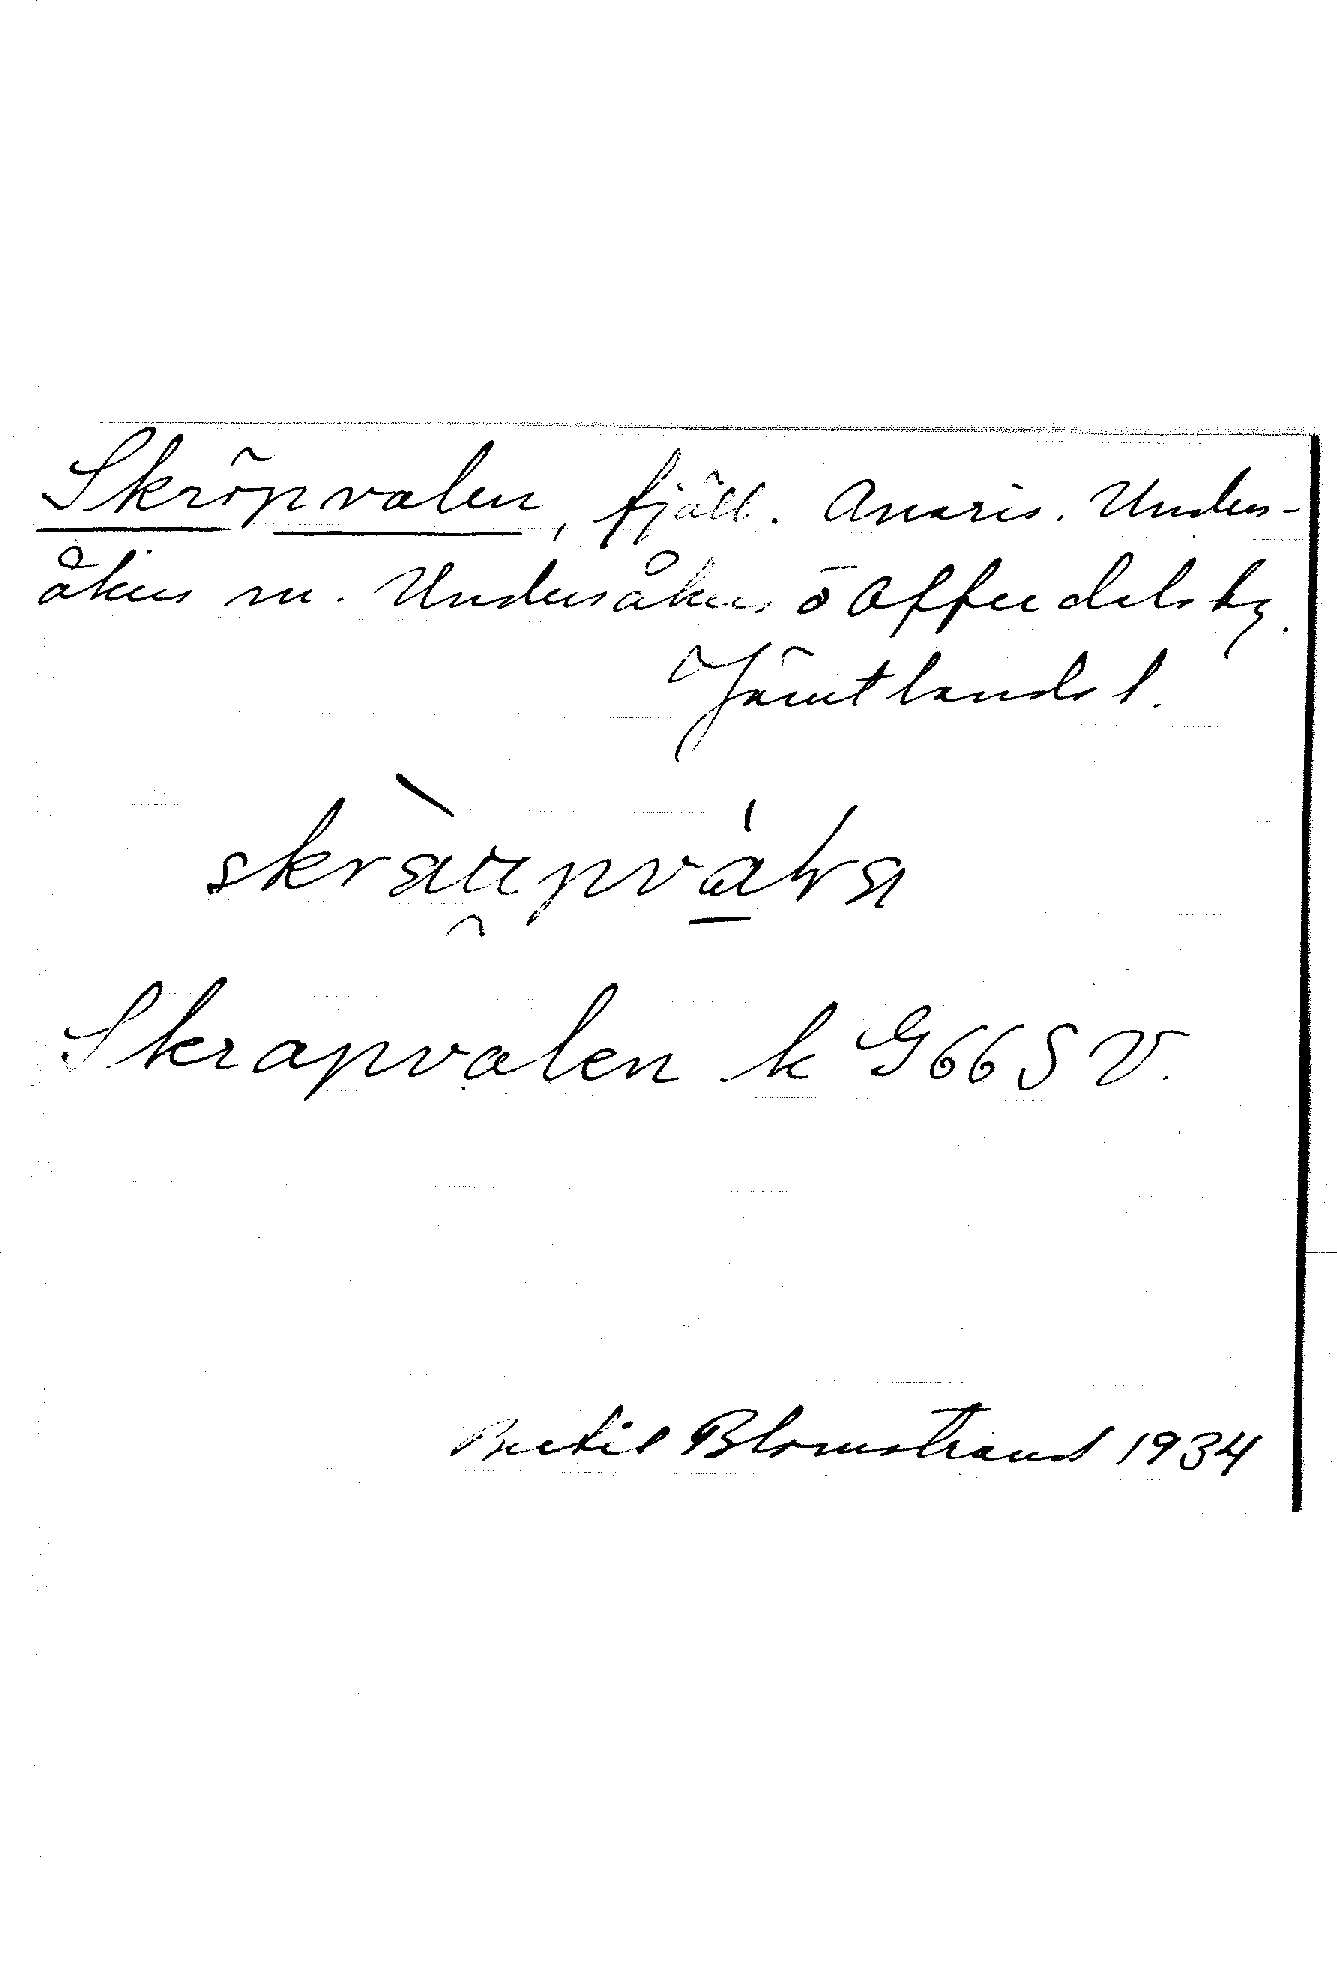 Skröpvalen, fjäll. Anaris. Unders-
åkers sn. Undersåkers o Offerdals tg.
Jämtlands l.
Skrapvalen k G66SV.
Bertil Blomstrand 1934